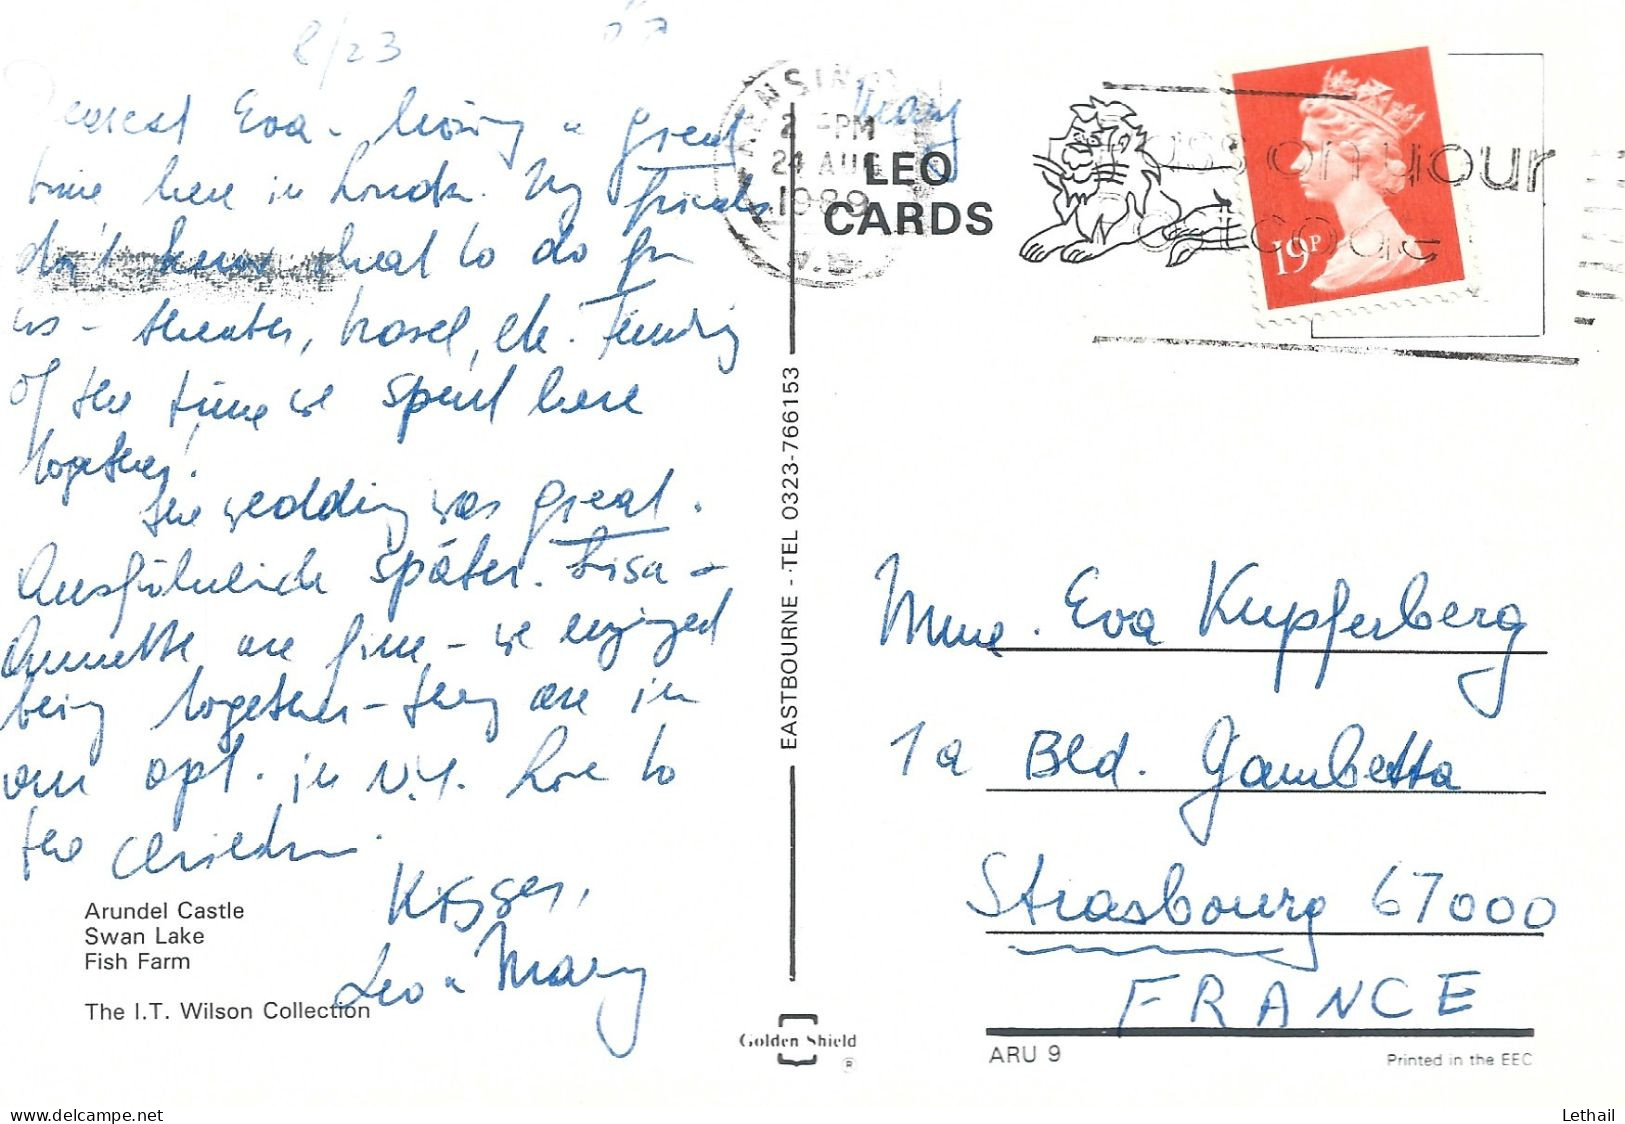 8/23
Dearest Eva - having a great
time here in London. My friends
don't know what to do for
us - theater, travel, etc. Thinking
of the time we spent here
together!
The wedding was great.
Ausführlich später. Lisa -
Annette are fine - we enjoyed
being together - they are in
our apt. in N.Y. Love to
the children.
Kisses,
Leo + Mary
Arundel Castle
Swan Lake
Fish Farm
The I.T. Wilson Collection
EASTBOURNE - TEL 0323-766153
Golden Shield
R
2 PM
24 AUG
1989
LEO
CARDS
on your
19P
Mme. Eva Kupferberg
1a Bld. Gambetta
Strasbourg 67000
FRANCE
ARU 9
Printed in the EEC
delcampe.net
Lethail